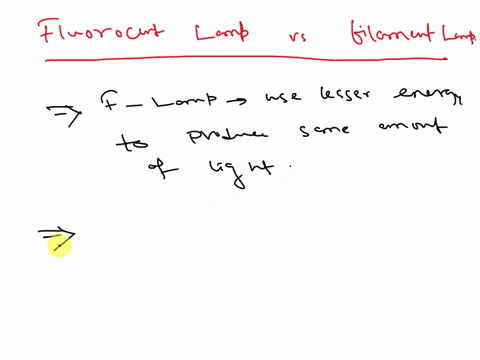 Fluorocent Lamp vs filament Lamp
⇒ F - Lamp → use lesser energy
to produce same amount
of light.
⇒